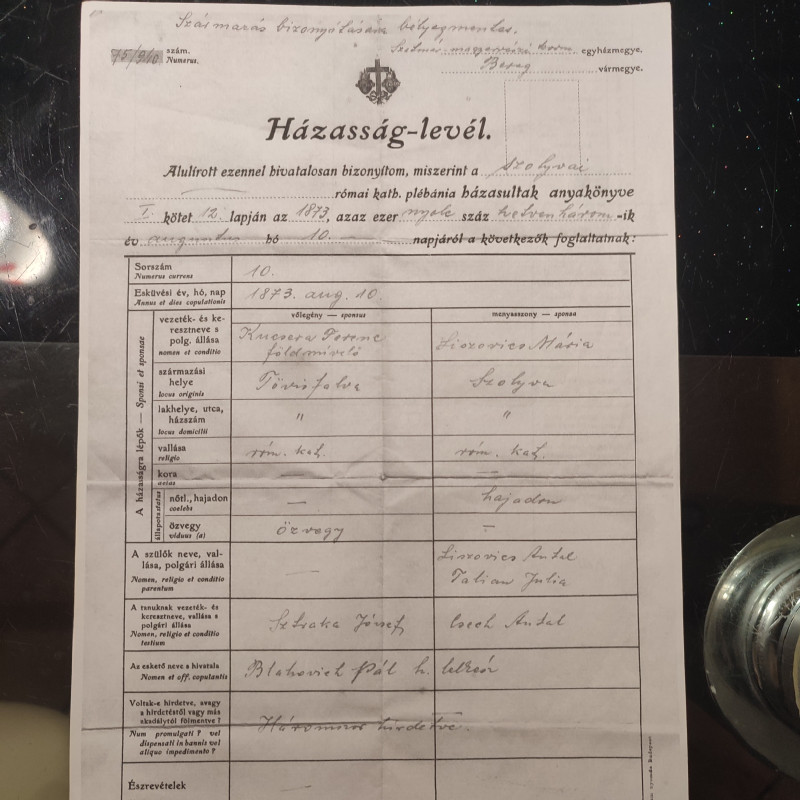 Származás bizonyítására bélyegmentes.
75/940 szám.
Numerus.
Szatmár egyházmegye.
Bereg vármegye.
Házasság-levél.
Alulírott ezennel hivatalosan bizonyítom, miszerint a szolyvai
római kath. plébánia házasultak anyakönyve
I. kötet 12. lapján az 1873, azaz ezer nyolc száz hetvenhárom-ik
év augusztus hó 10. napjáról a következők foglaltatnak:
Sorszám
Numerus currens
10.
Esküvési év, hó, nap
Annus et dies copulationis
1873. aug. 10.
A házasságra lépők — Sponsi et sponsae
vőlegény — sponsus
menyasszony — sponsa
vezeték- és ke-
resztneve s
polg. állása
nomen et conditio
Kucsera Ferenc
földmívelő
Liszovics Mária
származási
helye
locus originis
Tövisfalva
Szolyva
lakhelye, utca,
házszám
locus domicilii
"
"
vallása
religio
róm. kat.
róm. kat.
kora
aetas
—
—
állapota status
nőtl., hajadon
coelebs
—
hajadon
özvegy
viduus (a)
özvegy
—
A szülők neve, val-
lása, polgári állása
Nomen, religio et conditio
parentum
—
Liszovics Antal
Talian Julia
A tanuknak vezeték- és
keresztneve, vallása s
polgári állása
Nomen, religio et conditio
testium
Sztraka József
Csech Antal
Az eskető neve s hivatala
Nomen et off. copulantis
Blahovich Pál h. lelkész
Voltak-e hirdetve, avagy
a hirdetéstől vagy más
akadálytól fölmentve?
Num promulgati? vel
dispensati in bannis vel
aliquo impedimento?
Háromszor hirdetve.
Észrevételek
—